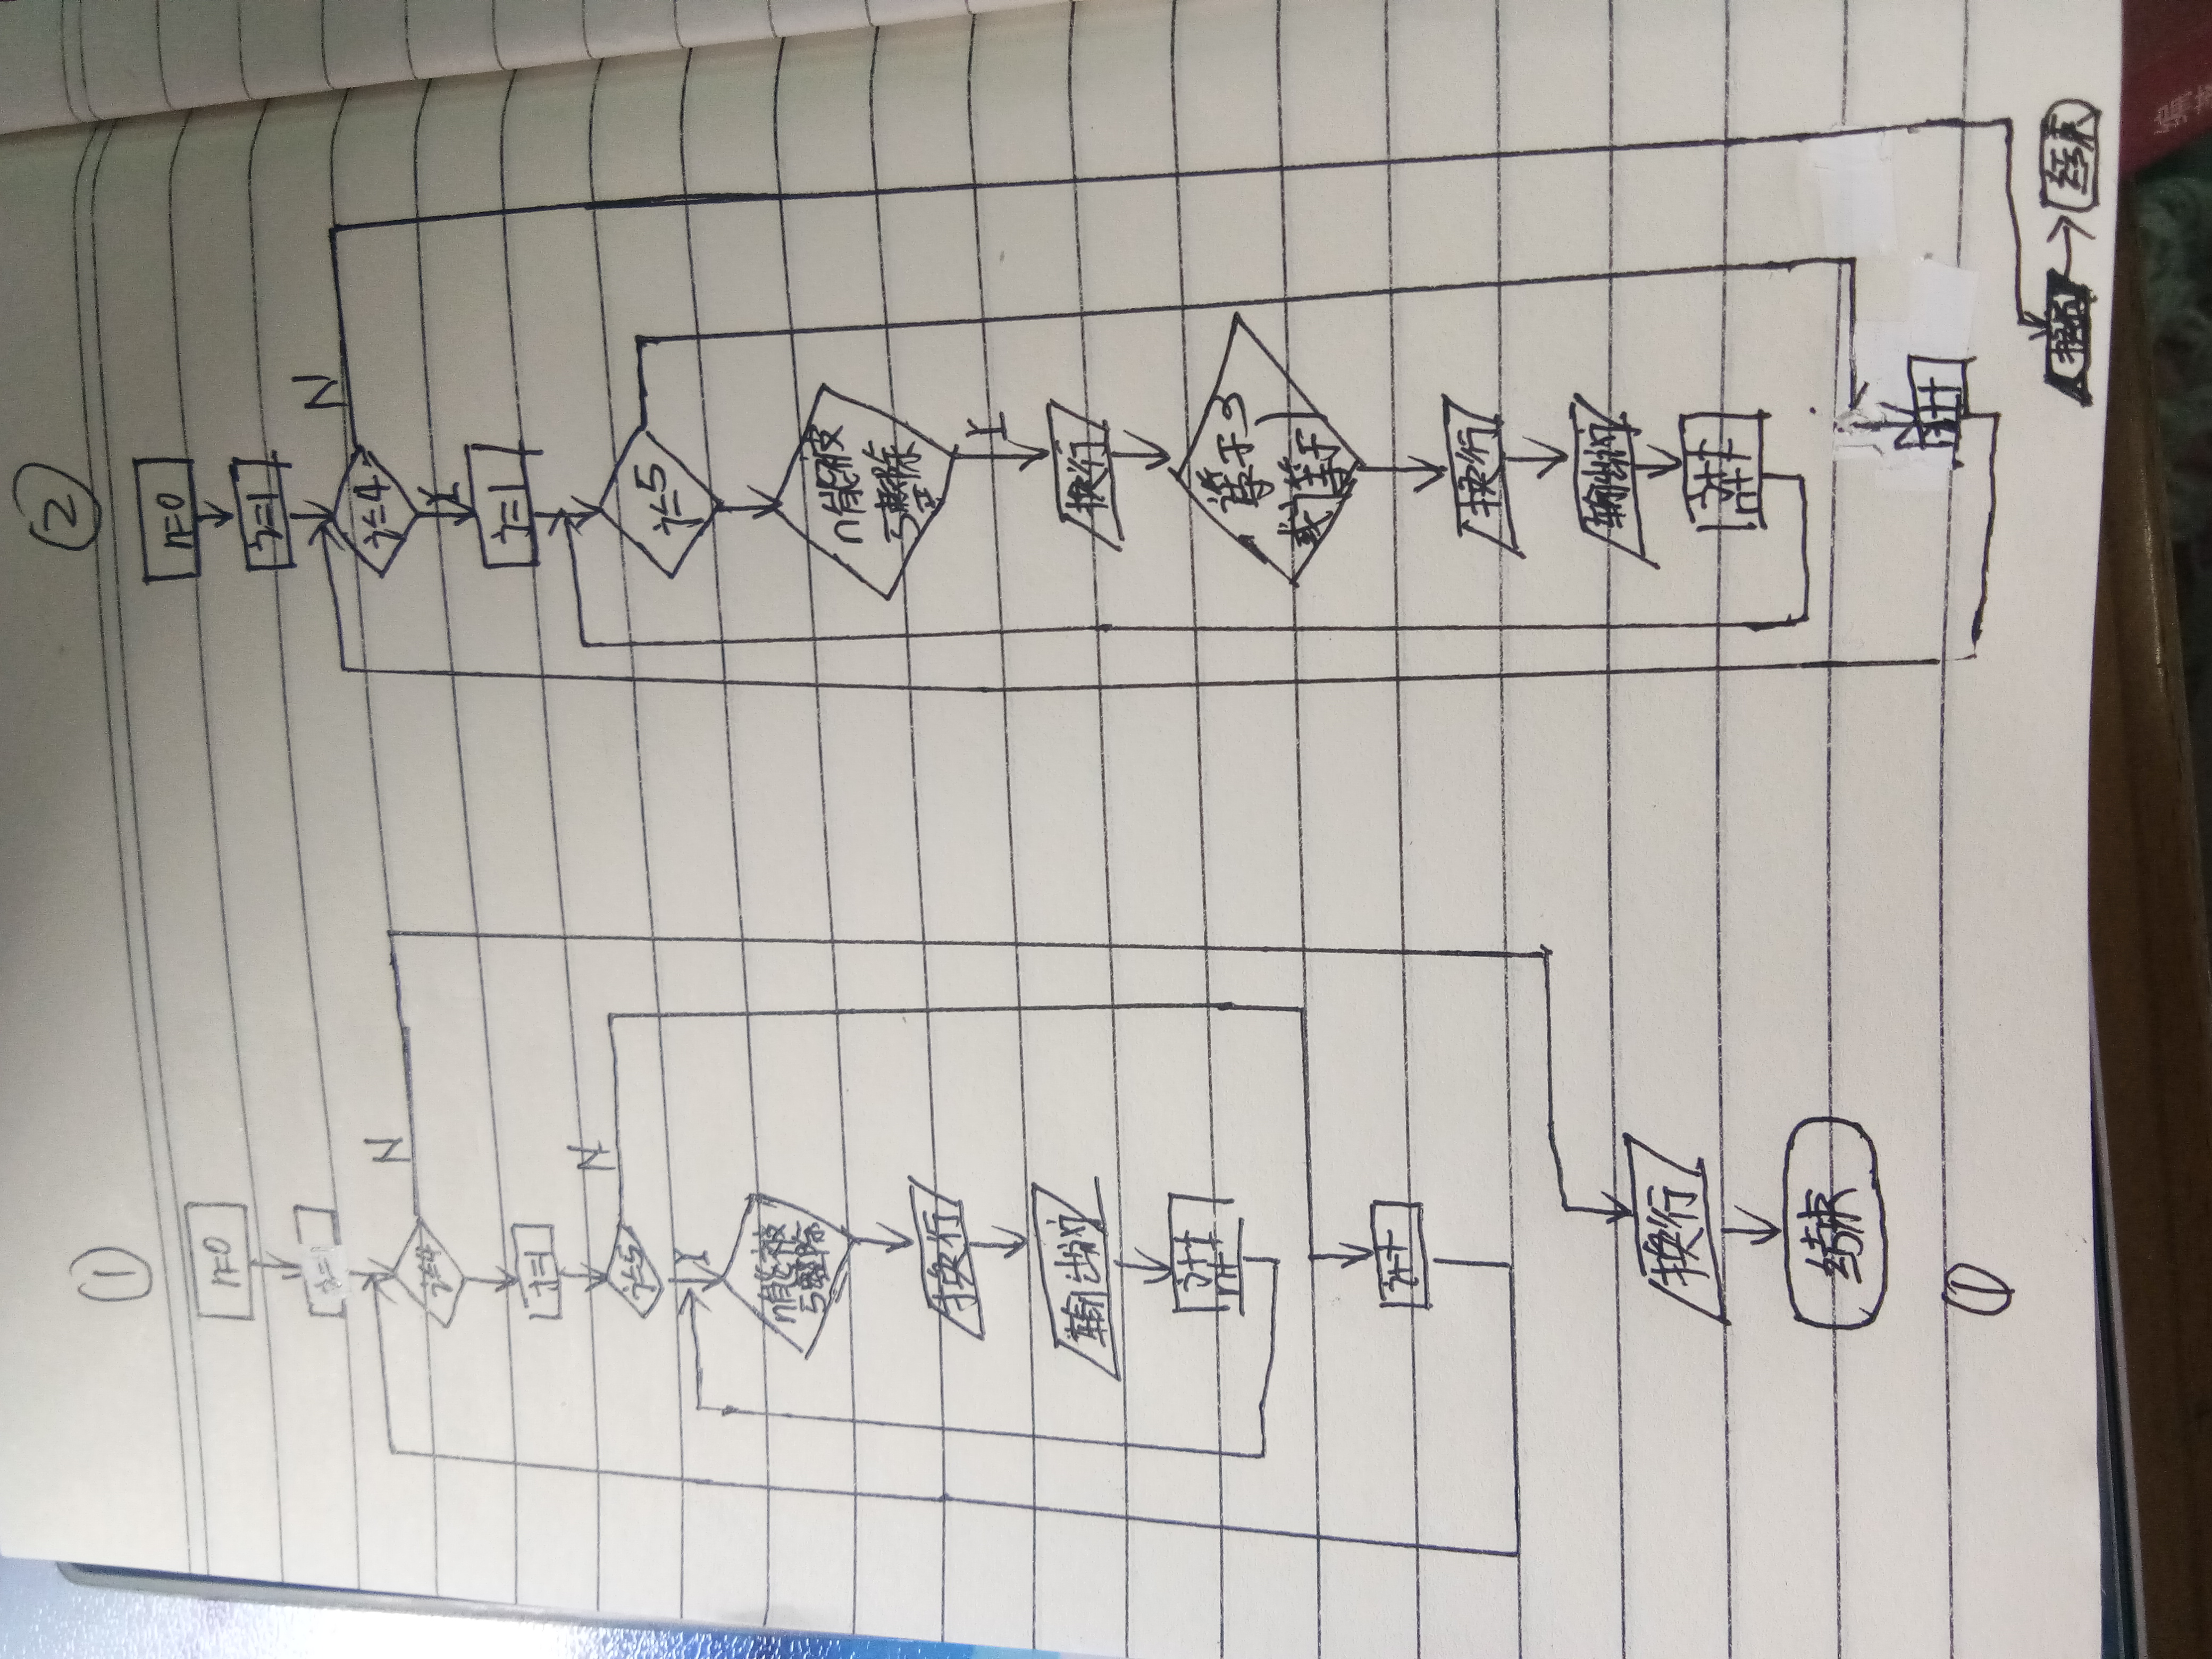 ①
n=0
i=1
i≤4
N
j=1
j≤5
N
Y
n能被
5整除
换行
输出i*j
j++
n++
i++
换行
结束
①
②
n=0
i=1
i≤4
N
Y
j=1
j≤5
n能被
5整除
Y
换行
i等于3
或j等于1
换行
输出i*j
j++
n++
i++
换行
结束